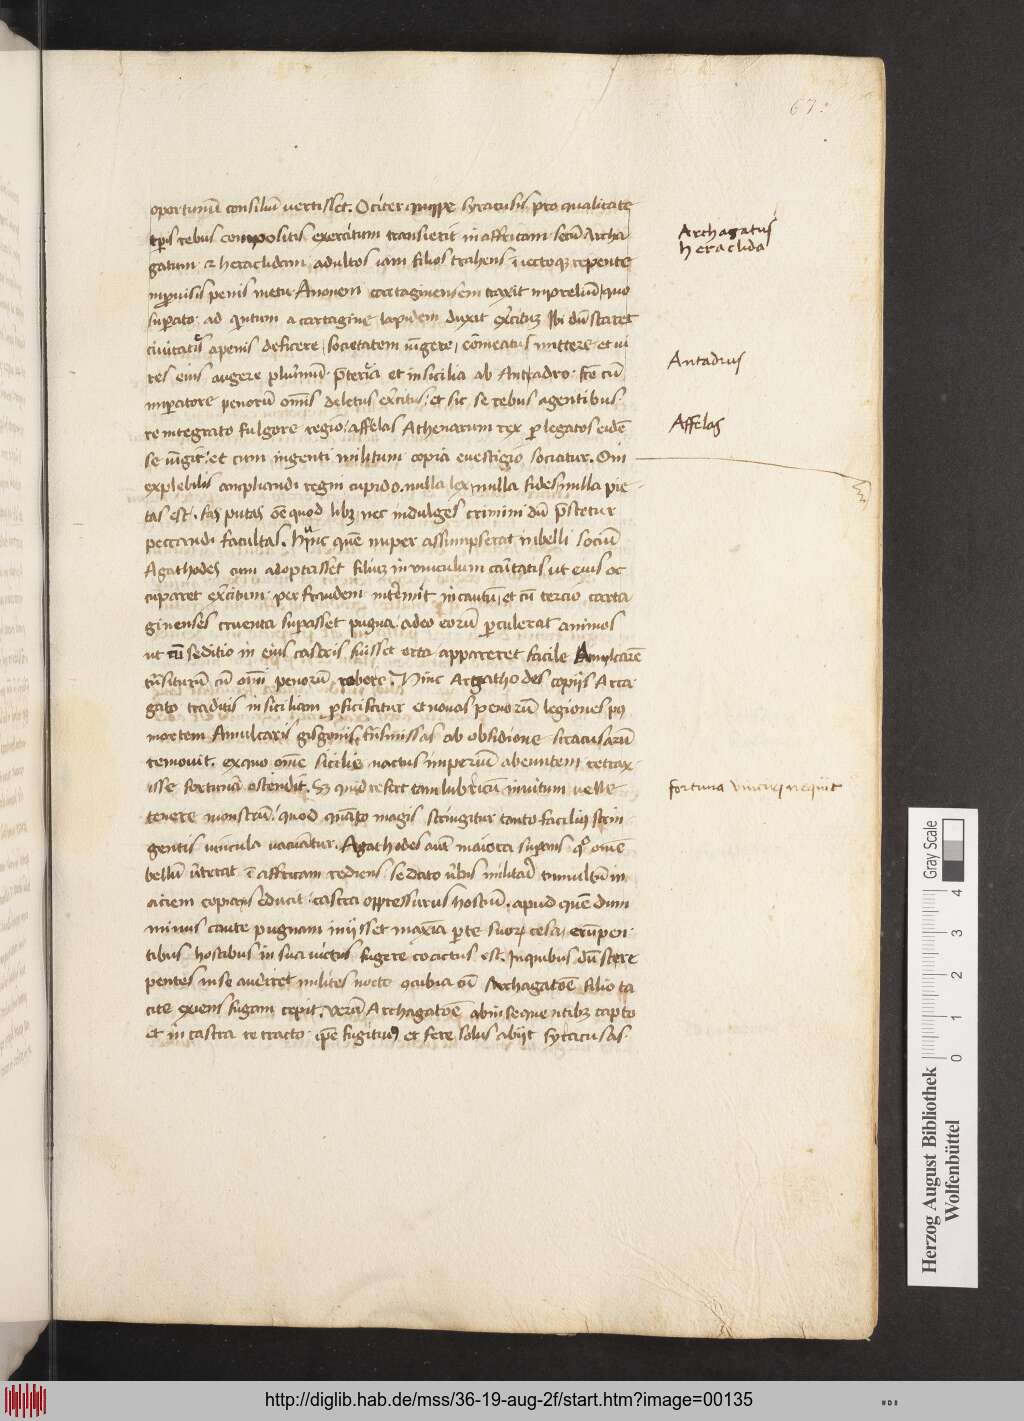 67:
oportunū consiliū vertisset. Ociter quippe syracusis pro qualitate
tp̄is rebus compositis exercitum transierit in affricam secū Archa
gatum et heraclidam adultos iam filios trahens
inprovisis penis metu Anonem cartaginensem traxit in prelium quo
superato ad quntum a cartagine lapidem duxit exercitus Ibi dū staret
civitates a penis deficere, societatem iūgere, cōmeatus mittere et vi
res eius augere et in sicilia ab Antandro cū
imperatore penorū omīs deletus exercitus et sic se rebus agentibus
reintegrato fulgore regio affelas Athenarum rex p legatos eidē
se iūgit et cum ingenti militum copia evestigio sociatur. O in
explebilis ampliandi regni cupido. nulla lex, nulla fides nulla pie
tas est. fas putas oē quod libet nec indulges crimini dū prestetur
peccandi facultas. Hunc quē nuper assumpserat in belli sociū
Agathodes cum adoptasset filium in vinculum caritatis ut eius oc
cuparet exercitum per fraudem interemit incautū, et cū tercio carta
ginenses cruenta superasset pugna adeo eorū perculerat animos
ut cū seditio in eius castris fuisset orta appareret facile Amylcarē
trāsiturū cū omī penorū robore. Hinc Agathodes copiis Arca
gato traditis in siciliam proficiscitur et novas penorū legiones post
mortem Amulcaris gisgonis trāsmissas ab obsidione siracusarū
removit. ex quo omē sicilie nactus imperiū abeuntem retrax
isse fortunā ostendit. Sed quid refert tam lubricū invitum velle
tenere monstrū, quod quāto magis stringitur tanto facilius strin
gentis vincula vacuātur. Agathodes autē maiora sperans
bellū in affricam rediens sedato militari tumultū in
aciem copias educit castra oppressurus hostiū. apud quē dum
minus caute pugnam iniisset maxīa parte suorum cesa, erūpen
tibus hostibus in sua victus fugere coactus est. In quibus dū stre
pentes in se audiret milites nocte cū Archagatoē filio ta
cite exiens fugam cepit. verū Archagatoē ab insequentibus capto
et in castra retracto ipē fugitivus et fere solus abiit syracusas.
Archagatus
heraclida
Antadrus
Affelas
fortuna vinciri nequit
Gray Scale
0 1 2 3 4
Herzog August Bibliothek
Wolfenbüttel
http://diglib.hab.de/mss/36-19-aug-2f/start.htm?image=00135